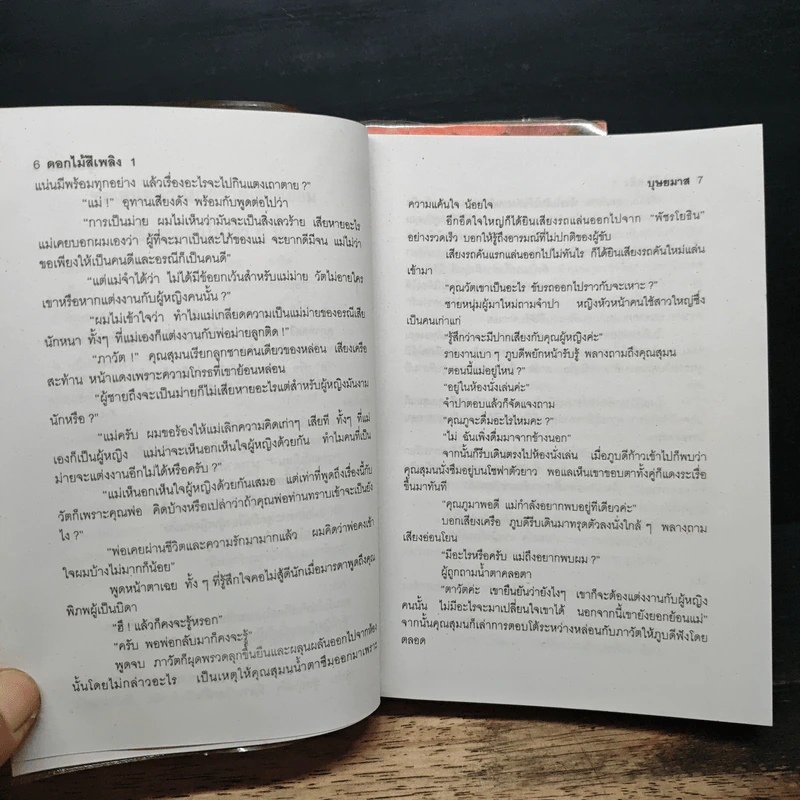 6 ดอกไม้สีเพลิง 1
แน่นมีพร้อมทุกอย่าง แล้วเรื่องอะไรจะไปกินแตงเถาตาย ?"
"แม่ !" อุทานเสียงดัง พร้อมกับพูดต่อไปว่า
"การเป็นม่าย ผมไม่เห็นว่ามันจะเป็นสิ่งเลวร้าย เสียหายอะไร
แม่เคยบอกผมเองว่า ผู้ที่จะมาเป็นสะใภ้ของแม่ จะยากดีมีจน แม่ไม่ว่า
ขอเพียงให้เป็นคนดีและอรณีก็เป็นคนดี"
"แต่แม่จำได้ว่า ไม่ได้มีข้อยกเว้นสำหรับแม่ม่าย วัตไม่อายใคร
เขาหรือหากแต่งงานกับผู้หญิงคนนั้น ?"
"ผมไม่เข้าใจว่า ทำไมแม่เกลียดความเป็นแม่ม่ายของอรณีเสีย
นักหนา ทั้งๆ ที่แม่เองก็แต่งงานกับพ่อม่ายลูกติด !"
"ภาวัต !" คุณสุมนเรียกลูกชายคนเดียวของหล่อน เสียงเครือ
สะท้าน หน้าแดงเพราะความโกรธที่เขาย้อนหล่อน
"ผู้ชายถึงจะเป็นม่ายก็ไม่เสียหายอะไรแต่สำหรับผู้หญิงมันงาม
นักหรือ ?"
"แม่ครับ ผมขอร้องให้แม่เลิกความคิดเก่าๆ เสียที ทั้งๆ ที่แม่
เองก็เป็นผู้หญิง แม่น่าจะเห็นอกเห็นใจผู้หญิงด้วยกัน ทำไมคนที่เป็น
ม่ายจะแต่งงานอีกไม่ได้หรือครับ ?"
"แม่เห็นอกเห็นใจผู้หญิงด้วยกันเสมอ แต่เท่าที่พูดถึงเรื่องนี้กับ
วัตก็เพราะคุณพ่อ คิดบ้างหรือเปล่าว่าถ้าคุณพ่อท่านทราบเข้าจะเป็นยัง
ไง ?"
"พ่อเคยผ่านชีวิตและความรักมามากแล้ว ผมคิดว่าพ่อคงเข้า
ใจผมบ้างไม่มากก็น้อย"
พูดหน้าตาเฉย ทั้ง ๆ ที่รู้สึกใจคอไม่สู้ดีนักเมื่อมารดาพูดถึงคุณ
พิภพผู้เป็นบิดา
"ฮึ ! แล้วก็คงจะรู้หรอก"
"ครับ พอพ่อกลับมาก็คงจะรู้"
พูดจบ ภาวัตก็ผุดพรวดลุกขึ้นยืนและผลุนผลันออกไปจากห้อง
นั้นโดยไม่กล่าวอะไร เป็นเหตุให้คุณสุมนน้ำตาซึมออกมาเพราะ
บุษยมาส 7
ความแค้นใจ น้อยใจ
อึกอึดใจใหญ่ก็ได้ยินเสียงรถแล่นออกไปจาก "พัชรโยธิน"
อย่างรวดเร็ว บอกให้รู้ถึงอารมณ์ที่ไม่ปกติของผู้ขับ
เสียงรถคันแรกแล่นออกไปไม่ทันไร ก็ได้ยินเสียงรถคันใหม่แล่น
เข้ามา
"คุณวัตเขาเป็นอะไร ขับรถออกไปราวกับจะเหาะ ?"
ชายหนุ่มผู้มาใหม่ถามจำปา หญิงหัวหน้าคนใช้สาวใหญ่ซึ่ง
เป็นคนเก่าแก่
"รู้สึกว่าจะมีปากเสียงกับคุณผู้หญิงค่ะ"
รายงานเบา ๆ ภูบดีพยักหน้ารับรู้ พลางถามถึงคุณสุมน
"ตอนนี้แม่อยู่ไหน ?"
"อยู่ในห้องนั่งเล่นค่ะ"
จำปาตอบแล้วก็จัดแจงถาม
"คุณภูจะดื่มอะไรไหมคะ ?"
"ไม่ ฉันเพิ่งดื่มมาจากข้างนอก"
จากนั้นก็รีบเดินตรงไปห้องนั่งเล่น เมื่อภูบดีก้าวเข้าไปก็พบว่า
คุณสุมนนั่งซึมอยู่บนโซฟาตัวยาว พอแลเห็นเขาขอบตาทั้งคู่ก็แดงระเรื่อ
ขึ้นมาทันที
"คุณภูมาพอดี แม่กำลังอยากพบอยู่ทีเดียวค่ะ"
บอกเสียงเครือ ภูบดีรีบเดินมาทรุดตัวลงนั่งใกล้ ๆ พลางถาม
เสียงอ่อนโยน
"มีอะไรหรือครับ แม่ถึงอยากพบผม ?"
ผู้ถูกถามน้ำตาคลอตา
"ตาวัตค่ะ เขายืนยันว่ายังไงๆ เขาก็จะต้องแต่งงานกับผู้หญิง
คนนั้น ไม่มีอะไรจะมาเปลี่ยนใจเขาได้ นอกจากนี้เขายังยอกย้อนแม่"
จากนั้นคุณสุมนก็เล่าการตอบโต้ระหว่างหล่อนกับภาวัตให้ภูบดีฟังโดย
ตลอด